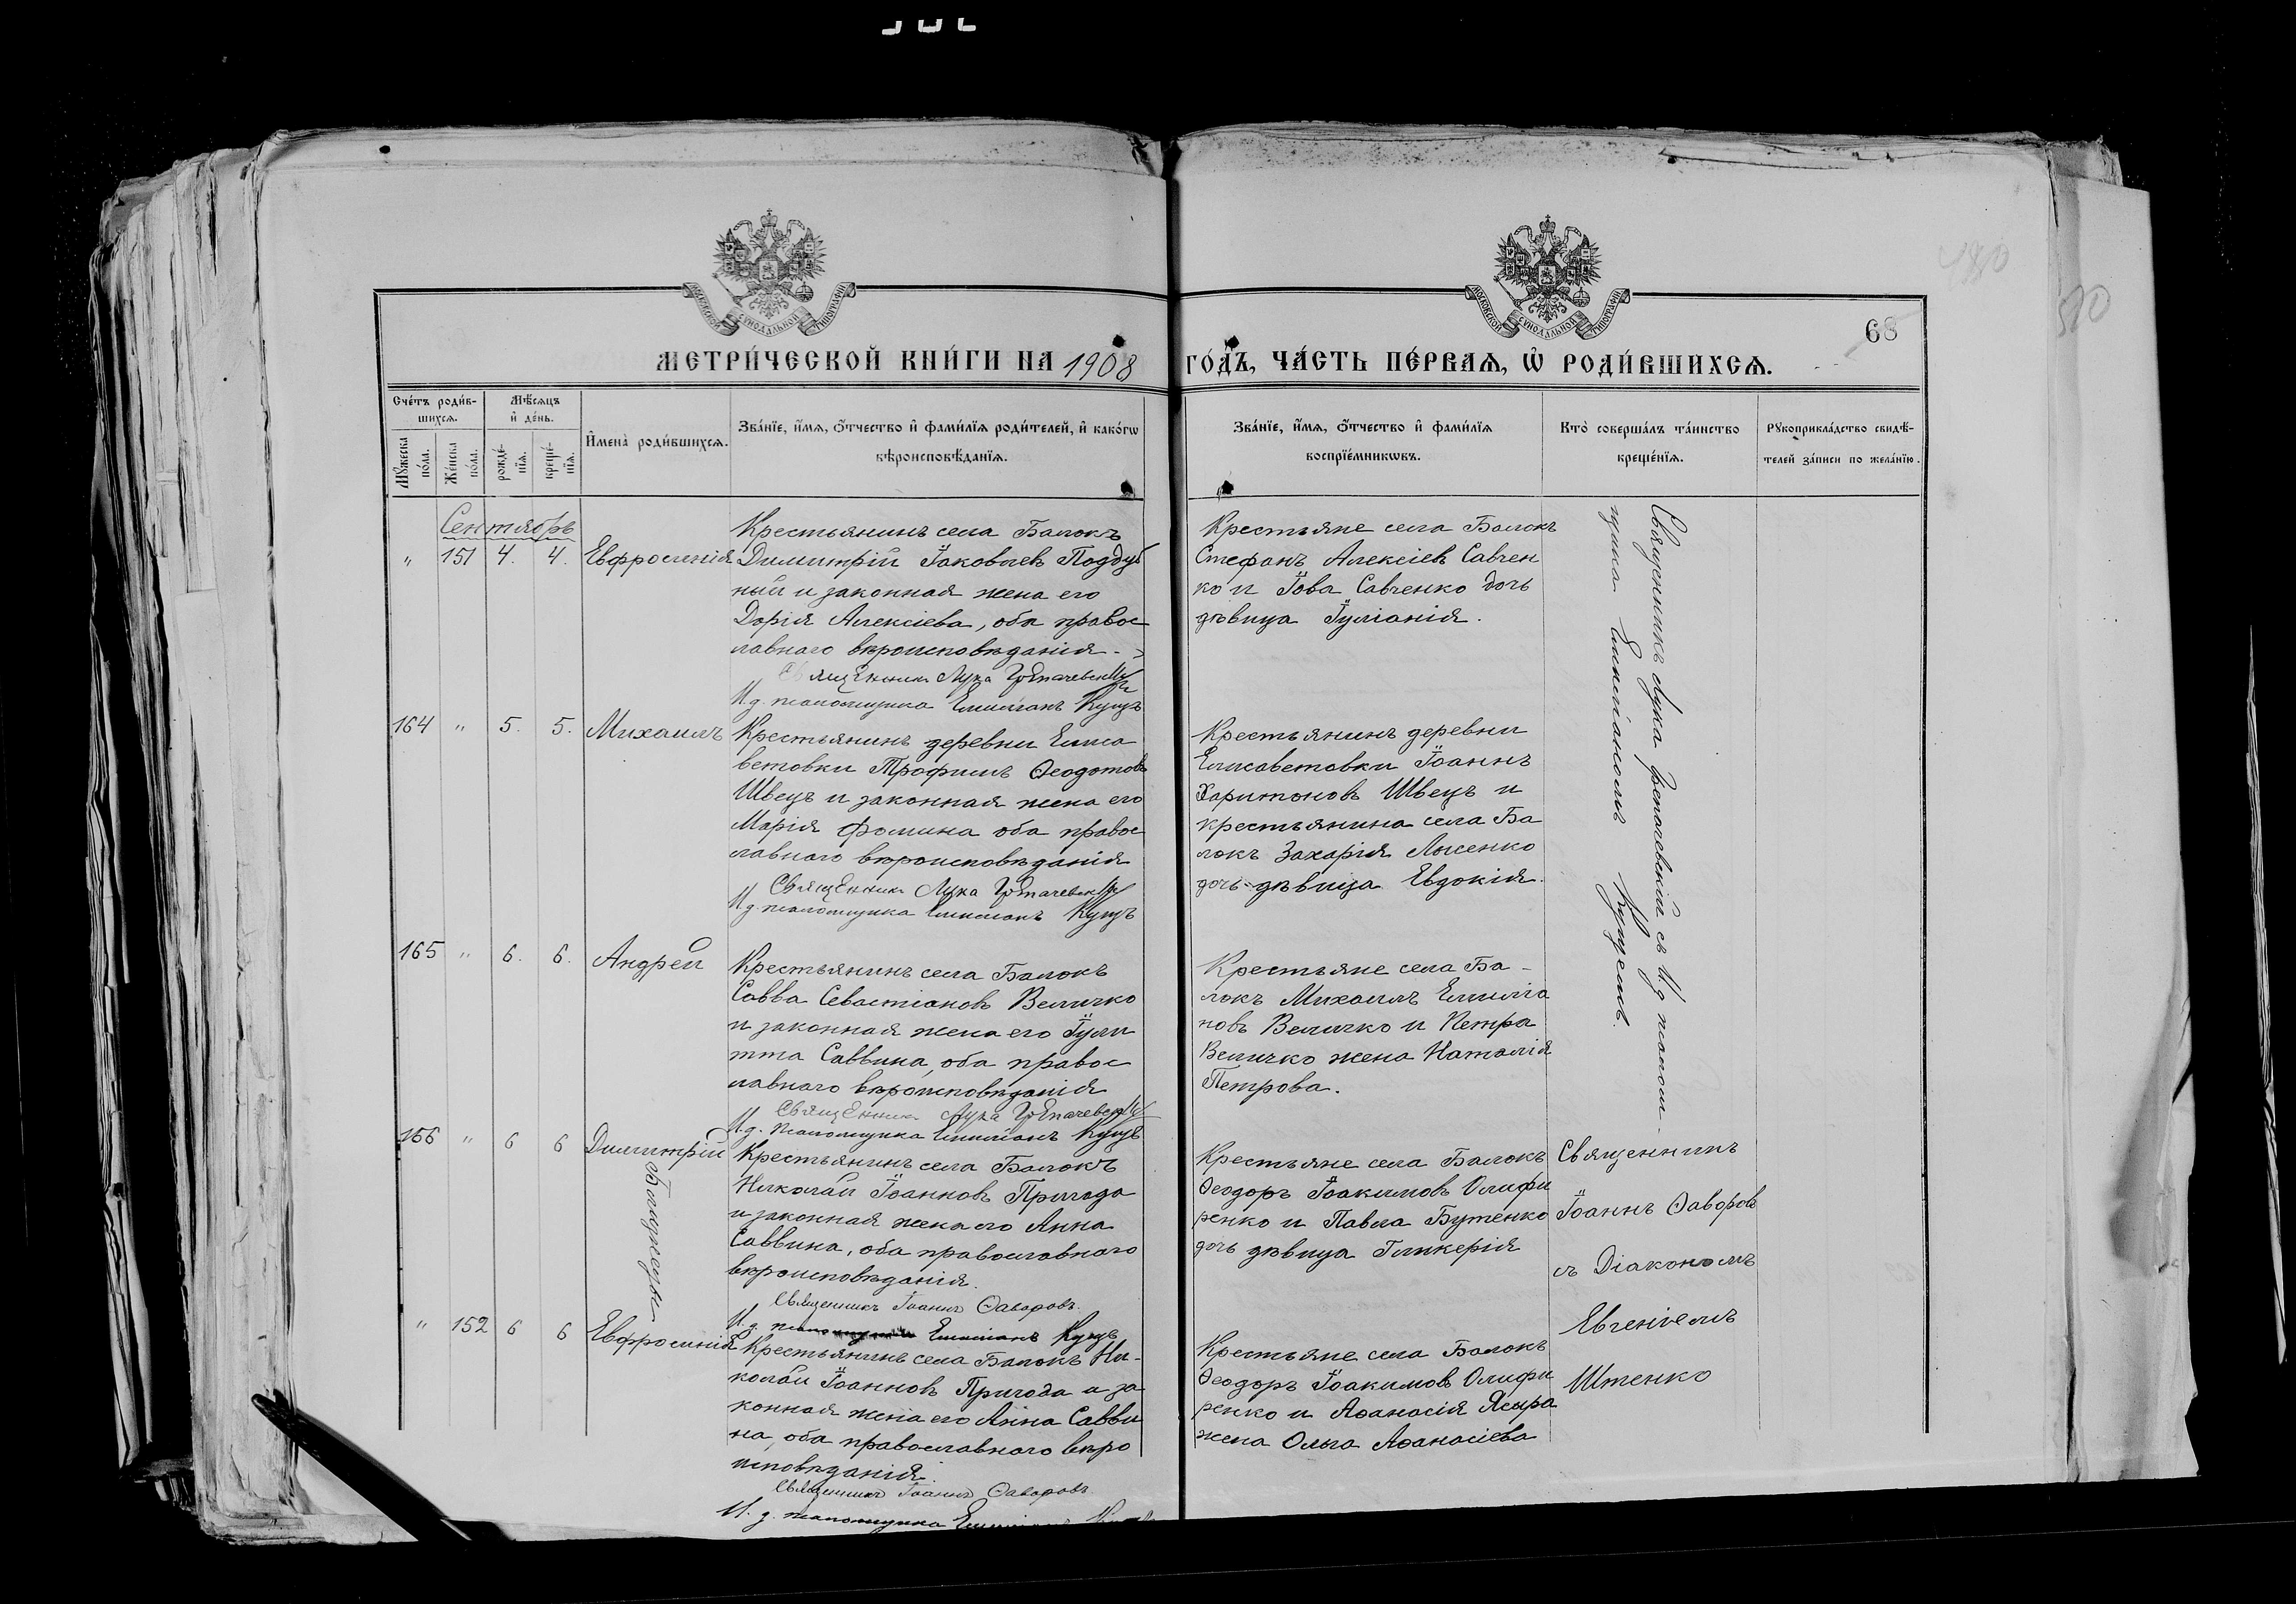 68
МЕТРИ́ЧЕСКОЙ КНИ́ГИ НА 1908 ГО́ДЪ, ЧА́СТЬ ПЕ́РВАѦ, Ѡ҆ РОДИ́ВШИХСѦ.
Сче́тъ роди́в-
шихсѧ.
Мꙋ́жеска по́ла.
Же́нска по́ла.
Мѣ́сѧцъ
и҆ де́нь.
рожде́-
нїѧ.
креще́-
нїѧ.
И҆мена̀ роди́вшихсѧ.
Зва́нїе, и҆́мѧ, ѻ҆́тчество и҆ фами́лїѧ роди́телей, и҆ како́гѡ
вѣроисповѣ́данїѧ.
Зва́нїе, и҆́мѧ, ѻ҆́тчество и҆ фами́лїѧ
воспрїе́мникѡвъ.
Кто̀ соверша́лъ та́инство
креще́нїѧ.
Рꙋкоприкла́дство свидѣ́-
телей за́писи по жела́нїю.
Сентябрь
" 151 4. 4. Евфросинія
Крестьянинъ села Балокъ
Димитрій Іаковлевъ Поддуб
ный и законная жена его
Дарія Алексіева, оба правос
лавнаго вѣроисповѣданія.
Священникъ Лука
И.д. псаломщика Емиліанъ Кущъ
Крестьяне села Балокъ
Стефанъ Алексіевъ Савчен
ко и Іова Савченко дочь
дѣвица Іуліанія.
164 " 5. 5. Михаилъ
Крестьянинъ деревни Елиса
ветовки Трофимъ Ѳеодотовъ
Швецъ и законная жена его
Марія Фомина оба правос
лавнаго вѣроисповѣданія
Священникъ Лука
И.д. псаломщика Емиліанъ Кущъ
Крестьянинъ деревни
Елисаветовки Іоаннъ
Харитоновъ Швецъ и
крестьянина села Ба
локъ Захарія Лысенко
дочь дѣвица Евдокія.
165 " 6. 6. Андрей
Крестьянинъ села Балокъ
Савва Севастіановъ Величко
и законная жена его Іули
тта Саввина, оба правос
лавнаго вѣроисповѣданія
Священникъ Лука
И.д. псаломщика Емиліанъ Кущъ
Крестьяне села Ба-
локъ Михаилъ Емилiа
новъ Величко и Петра
Величко жена Наталія
Петрова.
Священникъ Лука с И.д. псалом-
щика Емиліаномъ Кущемъ.
166 " 6 6 Димитрій
Близнецы
Крестьянинъ села Балокъ
Николай Іоанновъ Пригода
и законная жена его Анна
Саввина, оба православнаго
вѣроисповѣданія.
Священникъ Іоаннъ Ѳаворовъ.
И.д. Емиліанъ Кущъ
Крестьяне села Балокъ
Ѳеодоръ Іоакимовъ Олифи
ренко и Павла Бутенко
дочь дѣвица Гликерія
Священникъ
Іоаннъ Ѳаворовъ
съ Діакономъ
Евгеніемъ
Штенко
" 152 6 6 Евфросинія
Крестьянинъ села Балокъ Ни-
колай Іоанновъ Пригода и за
конная жена его Анна Савви
на, оба православнаго вѣро
исповѣданія.
Священникъ Іоаннъ Ѳаворовъ
И. д. псаломщика
Крестьяне села Балокъ
Ѳеодоръ Іоакимовъ Олифи
ренко и Аѳанасія Ясыра
жена Ольга Аѳанасіева